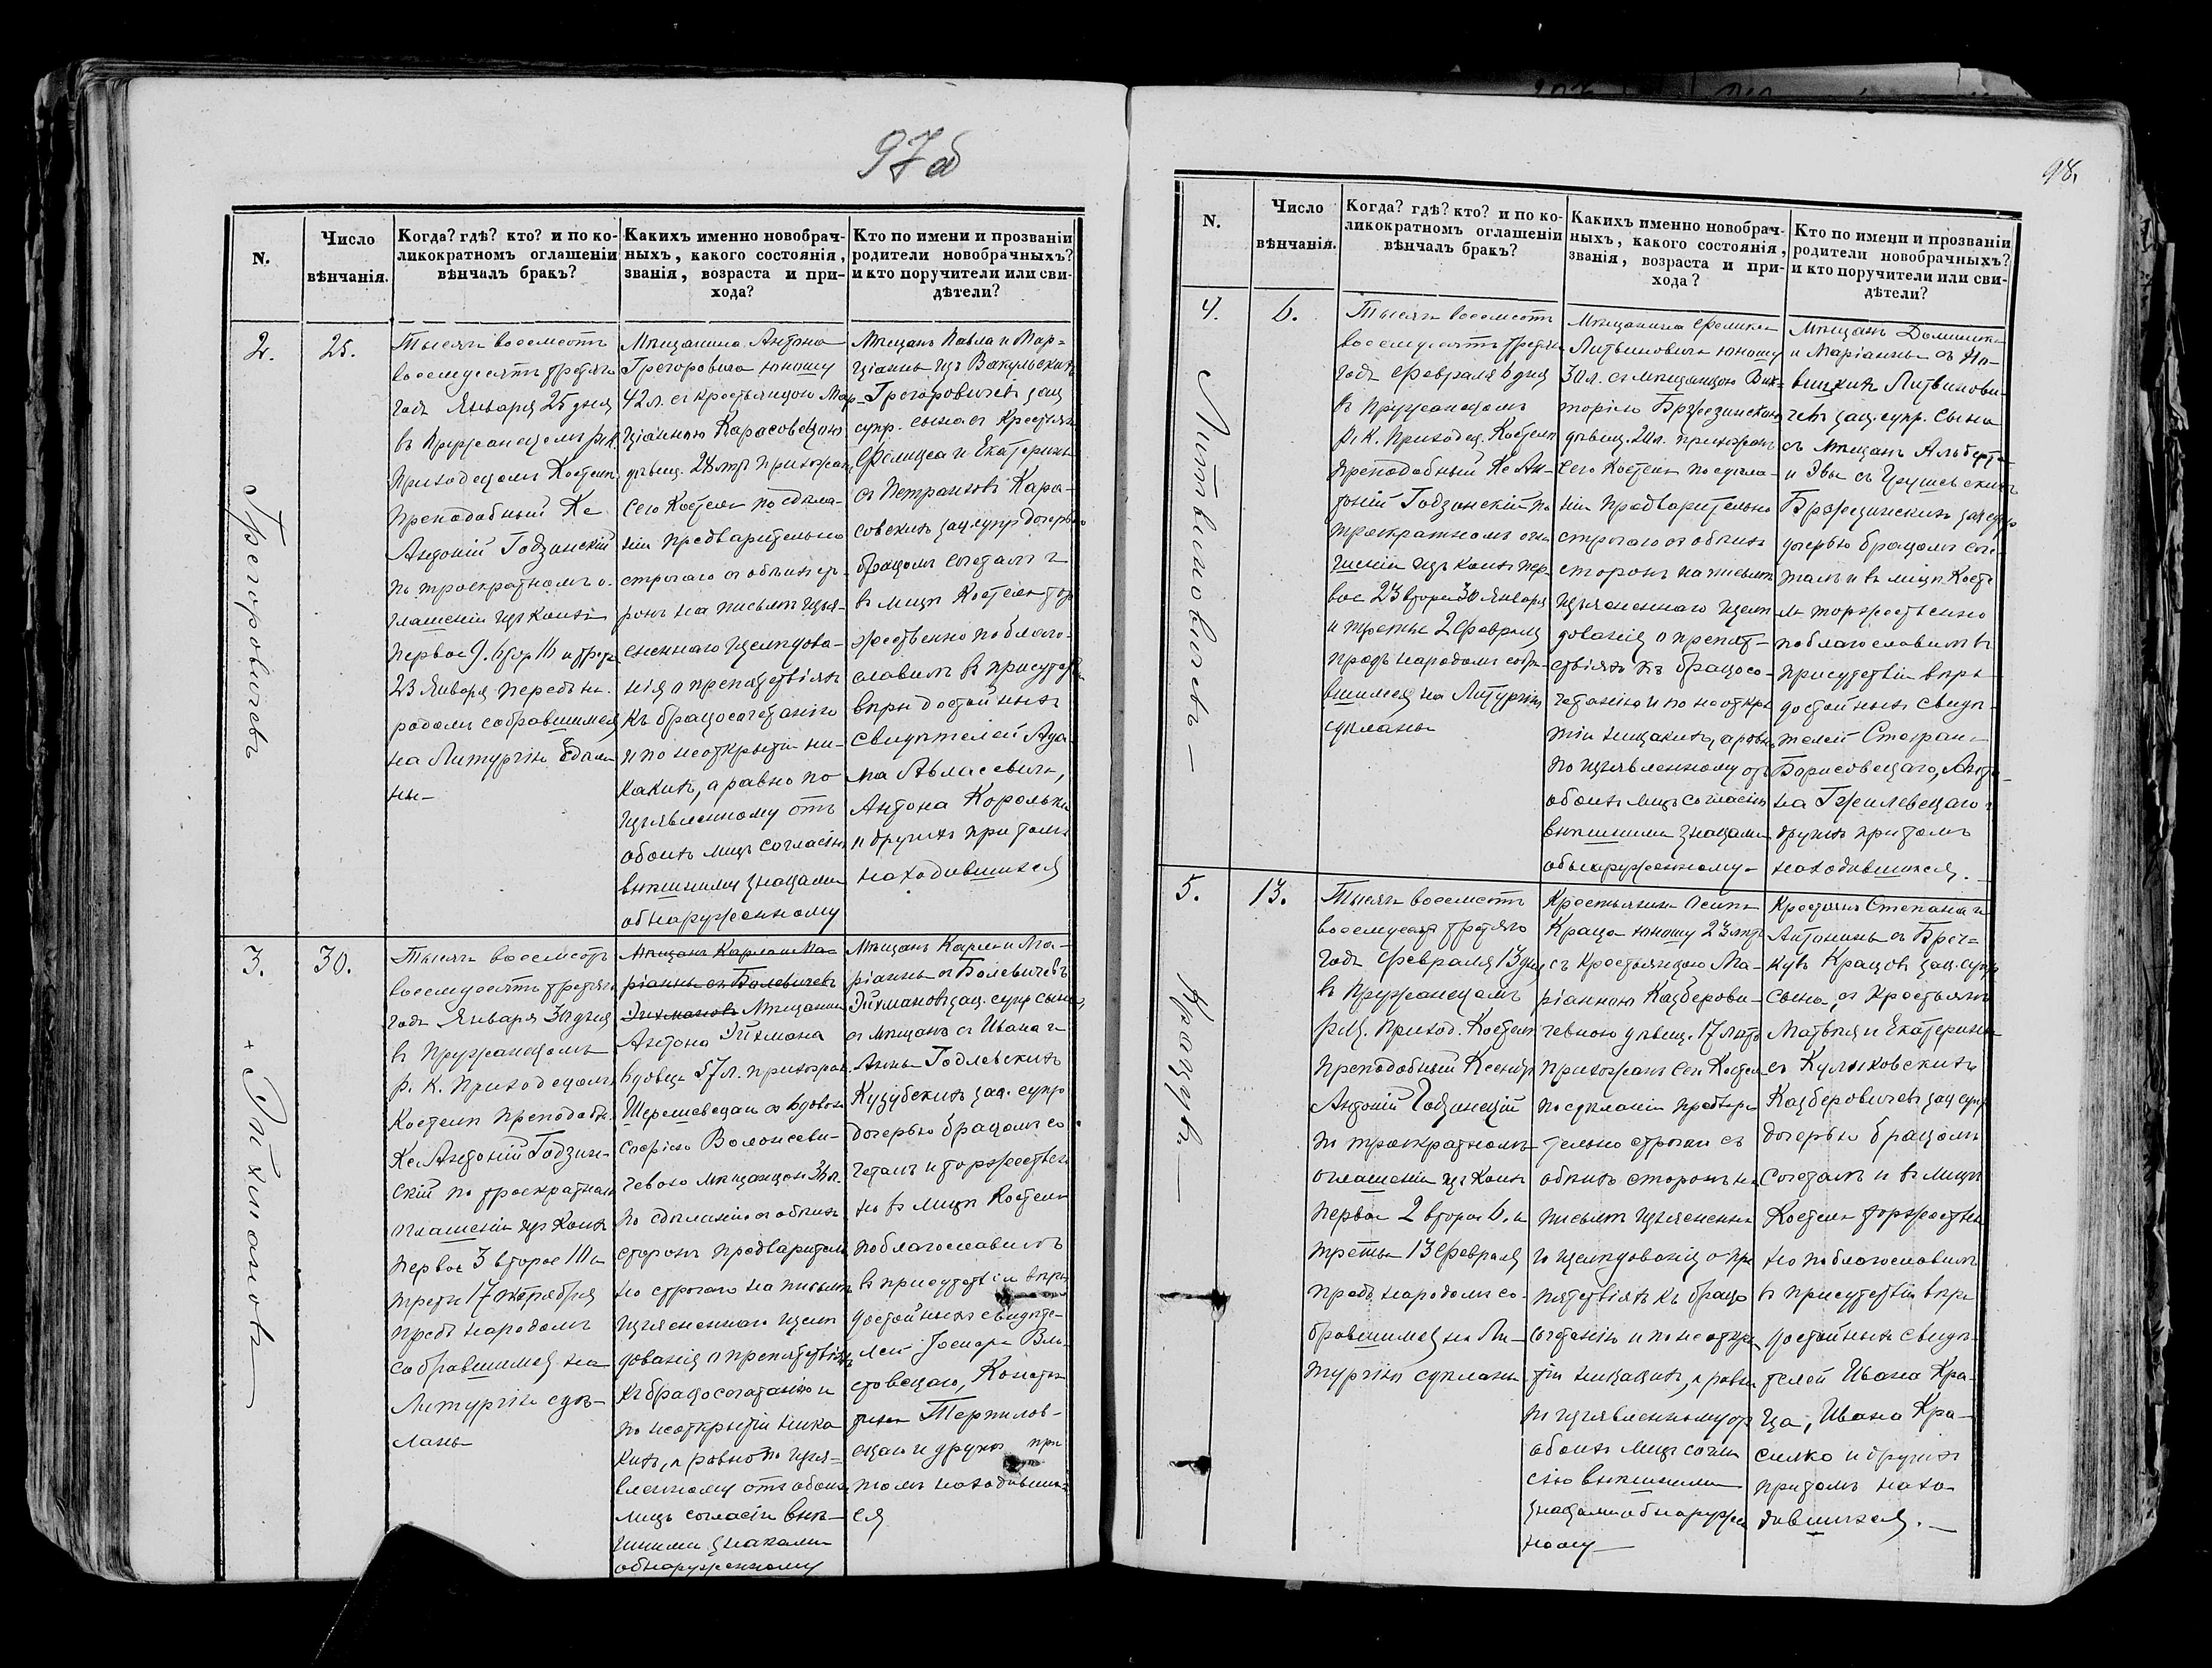 97об
N.
Число
вѣнчанія.
Когда? гдѣ? кто? и по ко-
ликократномъ оглашеніи
вѣнчалъ бракъ?
Какихъ именно новобрач-
ныхъ, какого состоянія,
званія, возраста и при-
хода?
Кто по имени и прозваніи
родители новобрачныхъ?
и кто поручители или сви-
дѣтели?
2.
Грегоровичевъ
25.
Тысяча восемсотъ
восемдесятъ третяго
года Января 25 дня
въ Пружанскомъ Р. К.
Приходскомъ Костелѣ
Преподобный Кс.
Антоній Годзинскій
по троекратномъ о-
глашеніи изъ коихъ
первое 9. втор 16 и трет
23 Января передъ на-
родомъ собравшимся
на Литургію сдѣла-
ны—
Мѣщанина Антона
Грегоровича юношу
42 л. съ крестьянкою Мар-
ціанною Карасовскою
дѣвиц. 28 лѣтъ прихожан.
сего Костела по сдѣла-
ніи предварительно
строгаго съ обѣихъ сто-
ронъ на письмѣ изъя-
сненнаго изслѣдова-
нія о препятствіяхъ
къ бракосочетанію
и по неоткрытіи ни-
какихъ, а равно по
изъявленному отъ
обоихъ лицъ согласію
внѣшними знаками
обнаруженному
Мѣщанъ Павла и Мар-
ціанны изъ Вакульскихъ
Грегоровичевъ зак.
супр. сына съ Крестьянъ
Феликса и Екатерины
съ Петранковъ Кара-
совскихъ зак. супр. дочерью
бракомъ сочеталъ и
въ лицѣ Костела тор-
жественно поблаго-
словилъ въ присутствіи
вѣры достойныхъ
Свидѣтелей Ада-
ма Авласевича,
Антона Королька
и другихъ притомъ
находившихся
3.
+ Эйхмановъ—
30.
Тысяча восемсотъ
восемдесятъ третяго
года Января 30 дня
въ Пружанскомъ
Р. К. Приходскомъ
Костелѣ Преподобн.
Кс. Антоній Годзин-
скій по троекратномъ
оглашеніи изъ коихъ
первое 3 второе 10 и
третье 17 Октября
предъ народомъ
собравшимся на
Литургію сдѣ-
ланы
Мѣщанъ Карла и Ма-
ріанны съ Болевичевъ
Эйхмановъ Мѣщанина
Антона Эйхмана
вдовца 57 л. прихожан.
Шерешевскаго съ вдовою
Софіею Волонсеви-
чевою мѣщанкою л.
по сдѣланію съ обѣихъ
сторонъ предваритель-
но строгаго на письмѣ
изъясненнаго изслѣ-
дованія о препятствіяхъ
къ бракосочетанію и
по неоткрытіи ника-
кихъ, а равно по изъя-
вленному отъ обоихъ
лицъ согласію внѣ-
шними знаками
обнаруженному
Мѣщанъ Карла и Ма-
ріанны съ Болевичевъ
Эйхмановъ зак. супр. сына,
съ мѣщанъ съ Ивана и
Анны Годлевскихъ
Кузубскихъ зак. супр.
дочерью бракомъ со-
четалъ и торжествен-
но въ лицѣ Костела
поблагословилъ
въ присутствіи вѣры
достойныхъ свидѣте-
лей Іосифа
Констан-
тина Терпилов-
скаго и другихъ при
томъ находивших-
ся
98.
N.
Число
вѣнчанія.
Когда? гдѣ? кто? и по ко-
ликократномъ оглашеніи
вѣнчалъ бракъ?
Какихъ именно новобрач-
ныхъ, какого состоянія,
званія, возраста и при-
хода?
Кто по имени и прозваніи
родители новобрачныхъ?
и кто поручители или сви-
дѣтели?
4.
Литвиновичевъ—
6.
Тысяча восемсотъ
восемдесятъ третяго
года Февраля 6 дня
въ Пружанскомъ
Р. К. Приходск. Костелѣ
Преподобный Кс. Ан-
тоній Годзинскій по
троекратномъ огла-
шеніи изъ коихъ пер-
вое 23 второе 30 Января
и третье 2 Февраля
предъ народомъ собра-
вшимся на Литургію
сдѣланы
Мѣщанина Феликса
Литвиновича юношу
30 л. съ мѣщанкою Вик-
торіею Бржезинскою
дѣвиц. 20 л. прихожанъ
сего Костела по сдѣла-
ніи предварительно
строгаго съ обѣихъ
сторонъ на письмѣ
изъясненнаго изслѣ-
дованія о препят-
ствіяхъ къ бракосо-
четанію и по неоткры-
тіи никакихъ, а равно
по изъявленному отъ
обоихъ лицъ согласію
внѣшними знаками
обнаруженному—
Мѣщанъ Доминика
и Маріанны съ
Литвинови-
чевъ зак. супр. сына
съ Мѣщанъ Альберта
и Эвы съ Грушевскихъ
Бржезинскихъ зак. супр.
дочерью бракомъ соче-
талъ и въ лицѣ Косте-
ла торжественно
поблагословилъ въ
присутствіи вѣры
достойныхъ Свидѣ-
телей Стефана
Борисовскаго, Анто-
на Гжилевскаго и
другихъ притомъ
находившихся.
5.
Крацукъ—
13.
Тысяча восемсотъ
восемдесятъ третяго
года Февраля 13 дня
въ Пружанскомъ
Р. К. Приход. Костелѣ
Преподобный Ксендзъ
Антоній Годзинскій
по троекратномъ
оглашеніи изъ коихъ
первое 2 второе 6. и
третье 13 Февраля
предъ народомъ со-
бравшимся на Ли-
тургію сдѣланы
Крестьянина Осипа
Краца юношу 23 лѣтъ
съ крестьянкою Ма-
ріанною Казберови-
чевною дѣвиц. 17 лѣтъ
прихожанъ сего Костела
по сдѣланіи предвари-
тельно строгаго съ
обѣихъ сторонъ на
письмѣ изъясненна-
го изслѣдованія о пре-
пятствіяхъ къ брако-
сочетанію и по неоткры-
тіи никакихъ, а равно
по изъявленному отъ
обоихъ лицъ согла-
сію внѣшними
знаками обнаружен-
ному—
Крестьянъ Степана и
Антонины съ
Крацовъ зак. супр.
сына, съ Крестьянъ
Матвѣя и Екатерины
съ Куликовскихъ
Казберовичевъ зак. супр.
дочерью бракомъ
сочеталъ и въ лицѣ
Костела торжествен-
но поблагословилъ
въ присутствіи вѣры
достойныхъ свидѣ-
телей Ивана Кра-
ца, Ивана Кра-
силко и другихъ
притомъ нахо-
дившихся.—